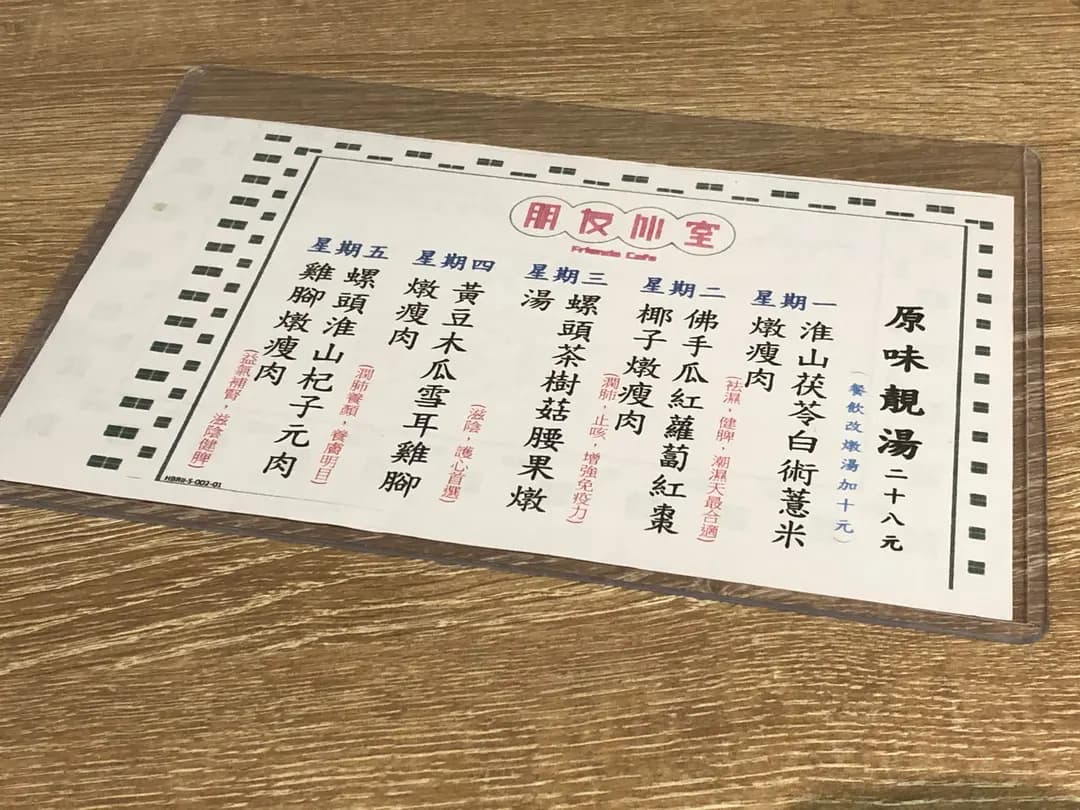 朋友冰室
Friends Cafe
原味靚湯 二十八元
(餐飲改燉湯加十元)
星期一
淮山茯苓白術薏米
燉瘦肉
(袪濕，健脾，潮濕天最合適)
星期二
佛手瓜紅蘿蔔紅棗
椰子燉瘦肉
(潤肺，止咳，增強免疫力)
星期三
螺頭茶樹菇腰果燉
湯
(滋陰，護心首選)
星期四
黃豆木瓜雪耳雞腳
燉瘦肉
(潤肺養顏，養膚明目)
星期五
螺頭淮山杞子元肉
雞腳燉瘦肉
(益氣補腎，滋陰健脾)